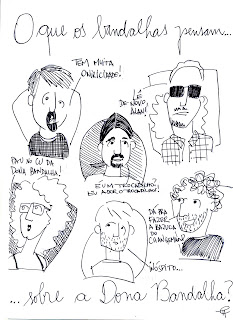 O que os bandalhas pensam...
TEM MUITA
ONIRICIDADE!
LÊ
DE NOVO,
ALAN!
PAU NO CU DA
DONA BANDALHA!
É UM TROCADALHO?
EU ADORO TROCADALHO!
DÁ PRA
FAZER
A BAZUCA DO
CHANGEMAN?
INÓSPITO...
... sobre a Dona Bandalha?